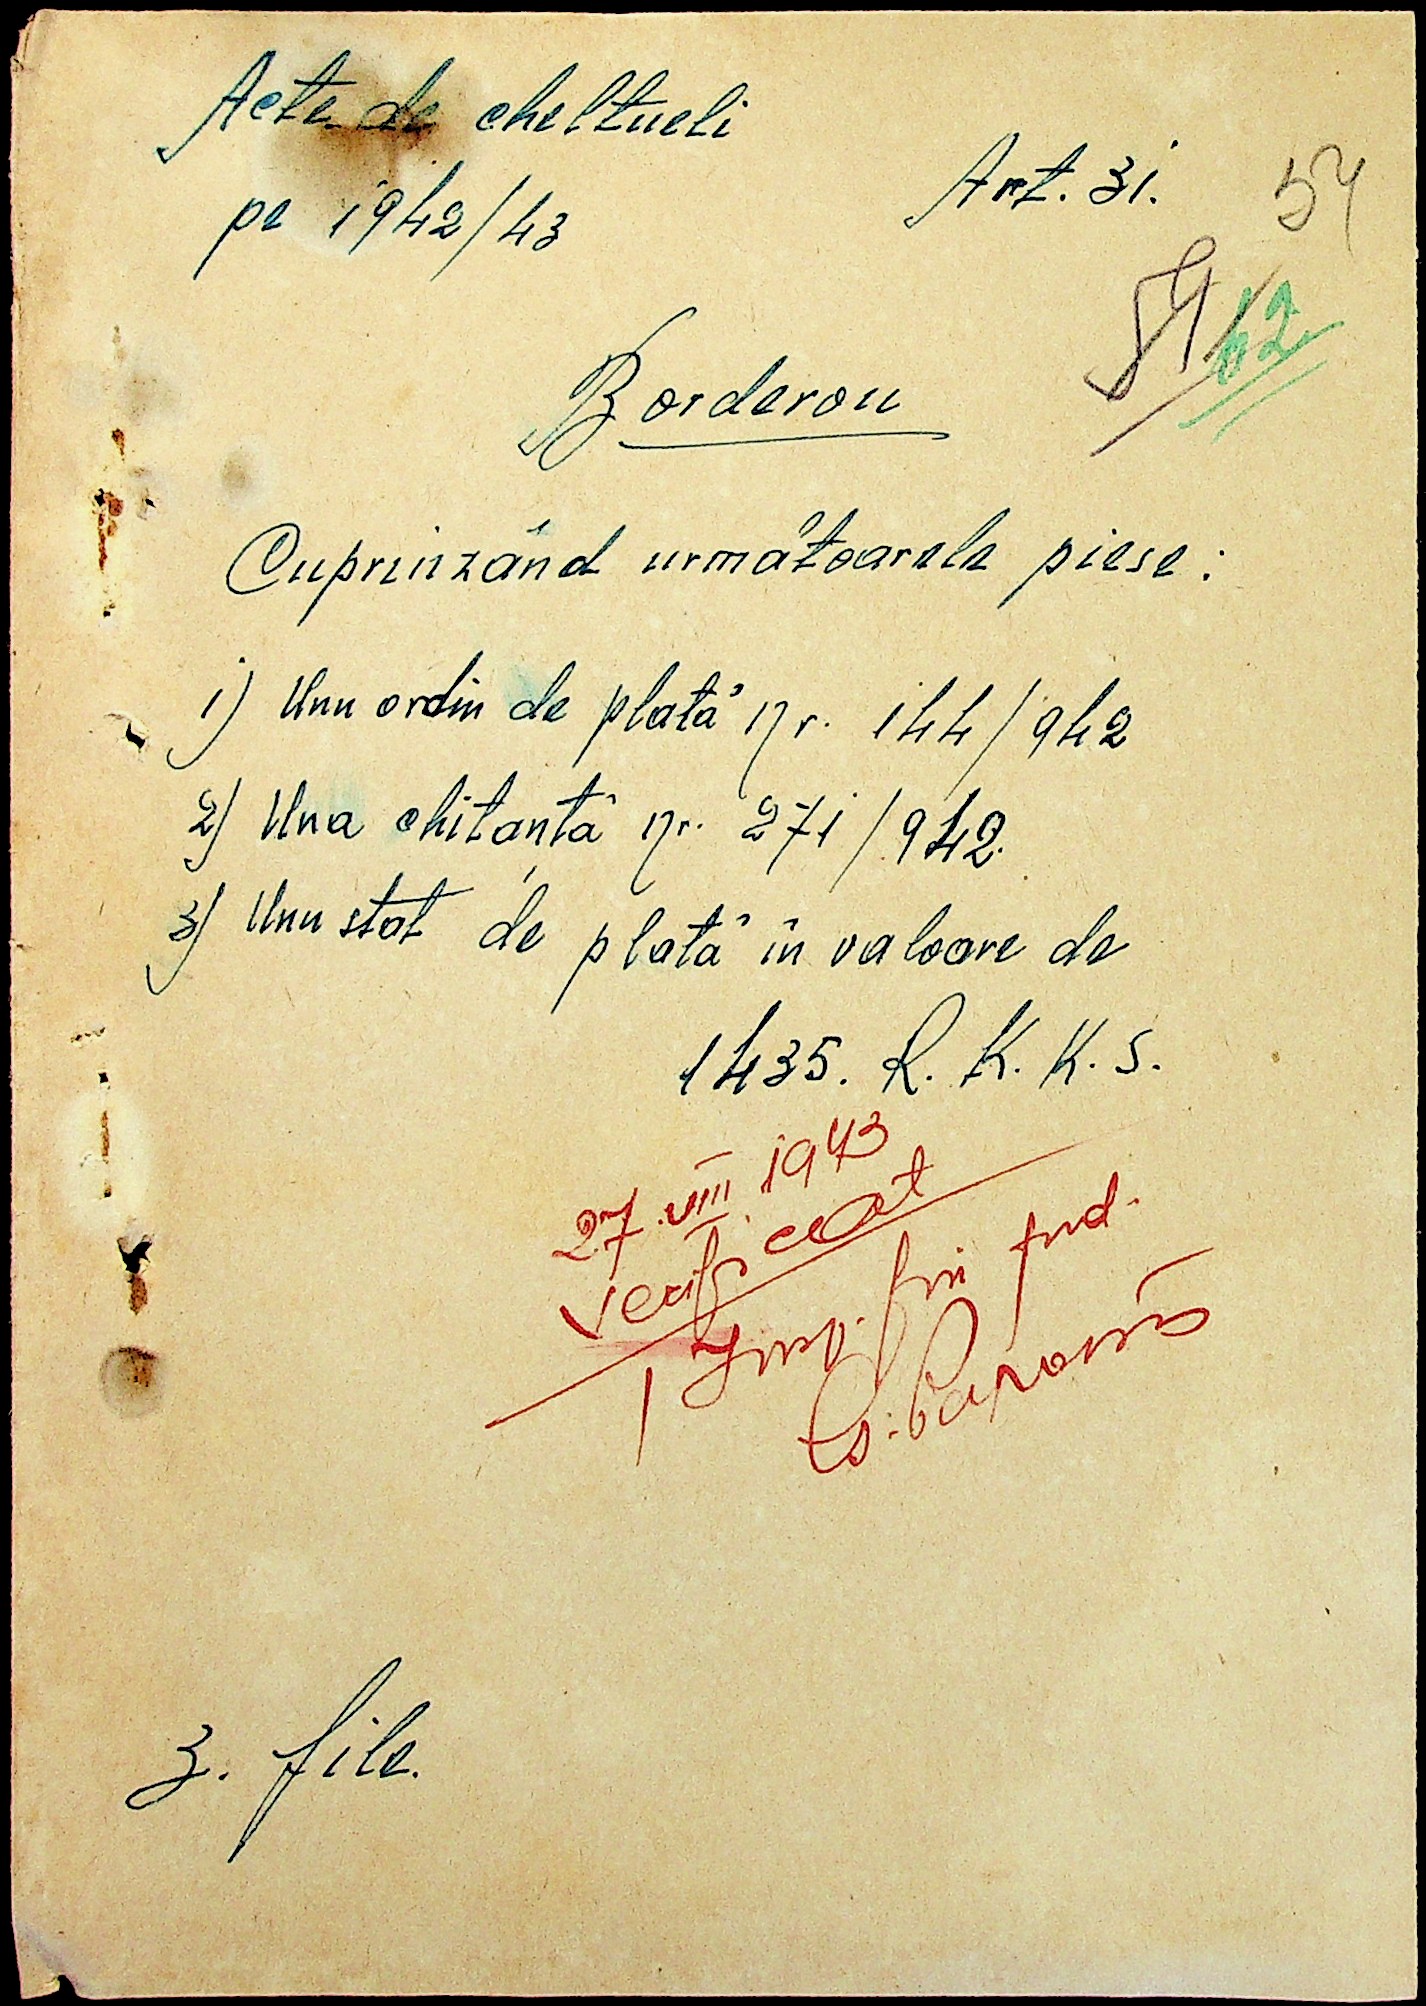 Acte de cheltueli
pe 1942/43
Art. 31.
54
54
62
Borderou
Cuprinzând următoarele piese:
1) Unu ordin de plată nr. 144/942
2) Una chitanță nr. 271/942.
3) Unu stat de plată în valoare de
1435. R. K. K. S.
27.VIII.1943
Verificat
fin
3. file.